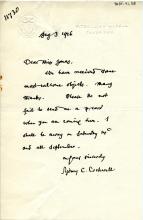 Aug 3 1926
Dear Miss Jones,
We have received some
most welcome objects. Many
thanks. Please do not
fail to send me a
when you are coming here. I
shall be away on Saturday
and all September.
Yours sincerely
Sydney C. Cockerell